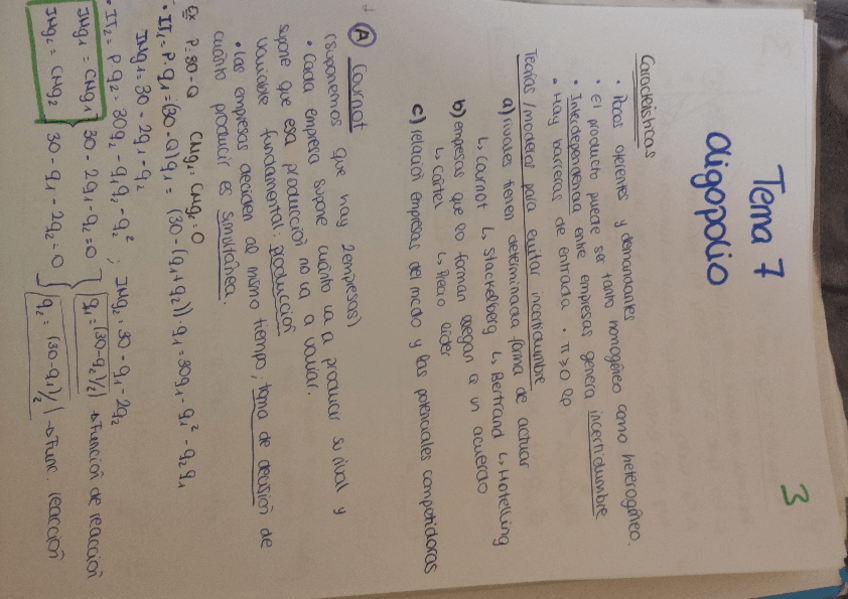 3
Tema 7
oligopolio
Características
• Pocos oferentes y demandantes
• El producto puede ser tanto homogéneo como heterogéneo.
• Interdependencia entre empresas genera incertidumbre
• Hay barreras de entrada • π ≥ 0 lp
Teorías/modelos para evitar incertidumbre
a) rivales tienen determinada forma de actuar
↳ Cournot ↳ Stackelberg ↳ Bertrand ↳ Hotelling
b) empresas que lo forman llegan a un acuerdo
↳ Cártel ↳ Precio líder
c) relación empresas del mcdo y las potenciales competidoras
A Cournot
(suponemos que hay 2 empresas)
• Cada empresa supone cuánto va a producir su rival y
supone que esa producción no va a variar.
Variable fundamental: producción
• Las empresas deciden al mismo tiempo, toma de decisión de
cuánto producir es simultánea.
Ex P=30-Q CMg₁, CMg₂=0
• IT₁= P·q₁ = (30-Q)q₁ = (30-(q₁+q₂))·q₁ = 30q₁ - q₁² - q₂q₁
IMg₁= 30 - 2q₁ - q₂
• IT₂= P q₂ = 30q₂ - q₁q₂ - q₂² ; IMg₂ = 30 - q₁ - 2q₂
IMg₁ = CMg₁ } 30 - 2q₁ - q₂ = 0 } q₁=(30-q₂)/2 → Función de reacción
IMg₂ = CMg₂ } 30 - q₁ - 2q₂ = 0 } q₂ = (30-q₁)/2 → Func. reacción